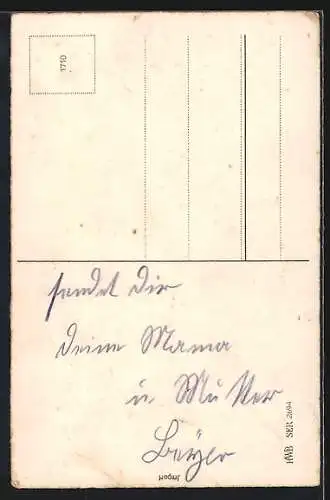 1710
sendet dir
deine Mama
u Mutter
Beyer
HWB SER 2694
Import